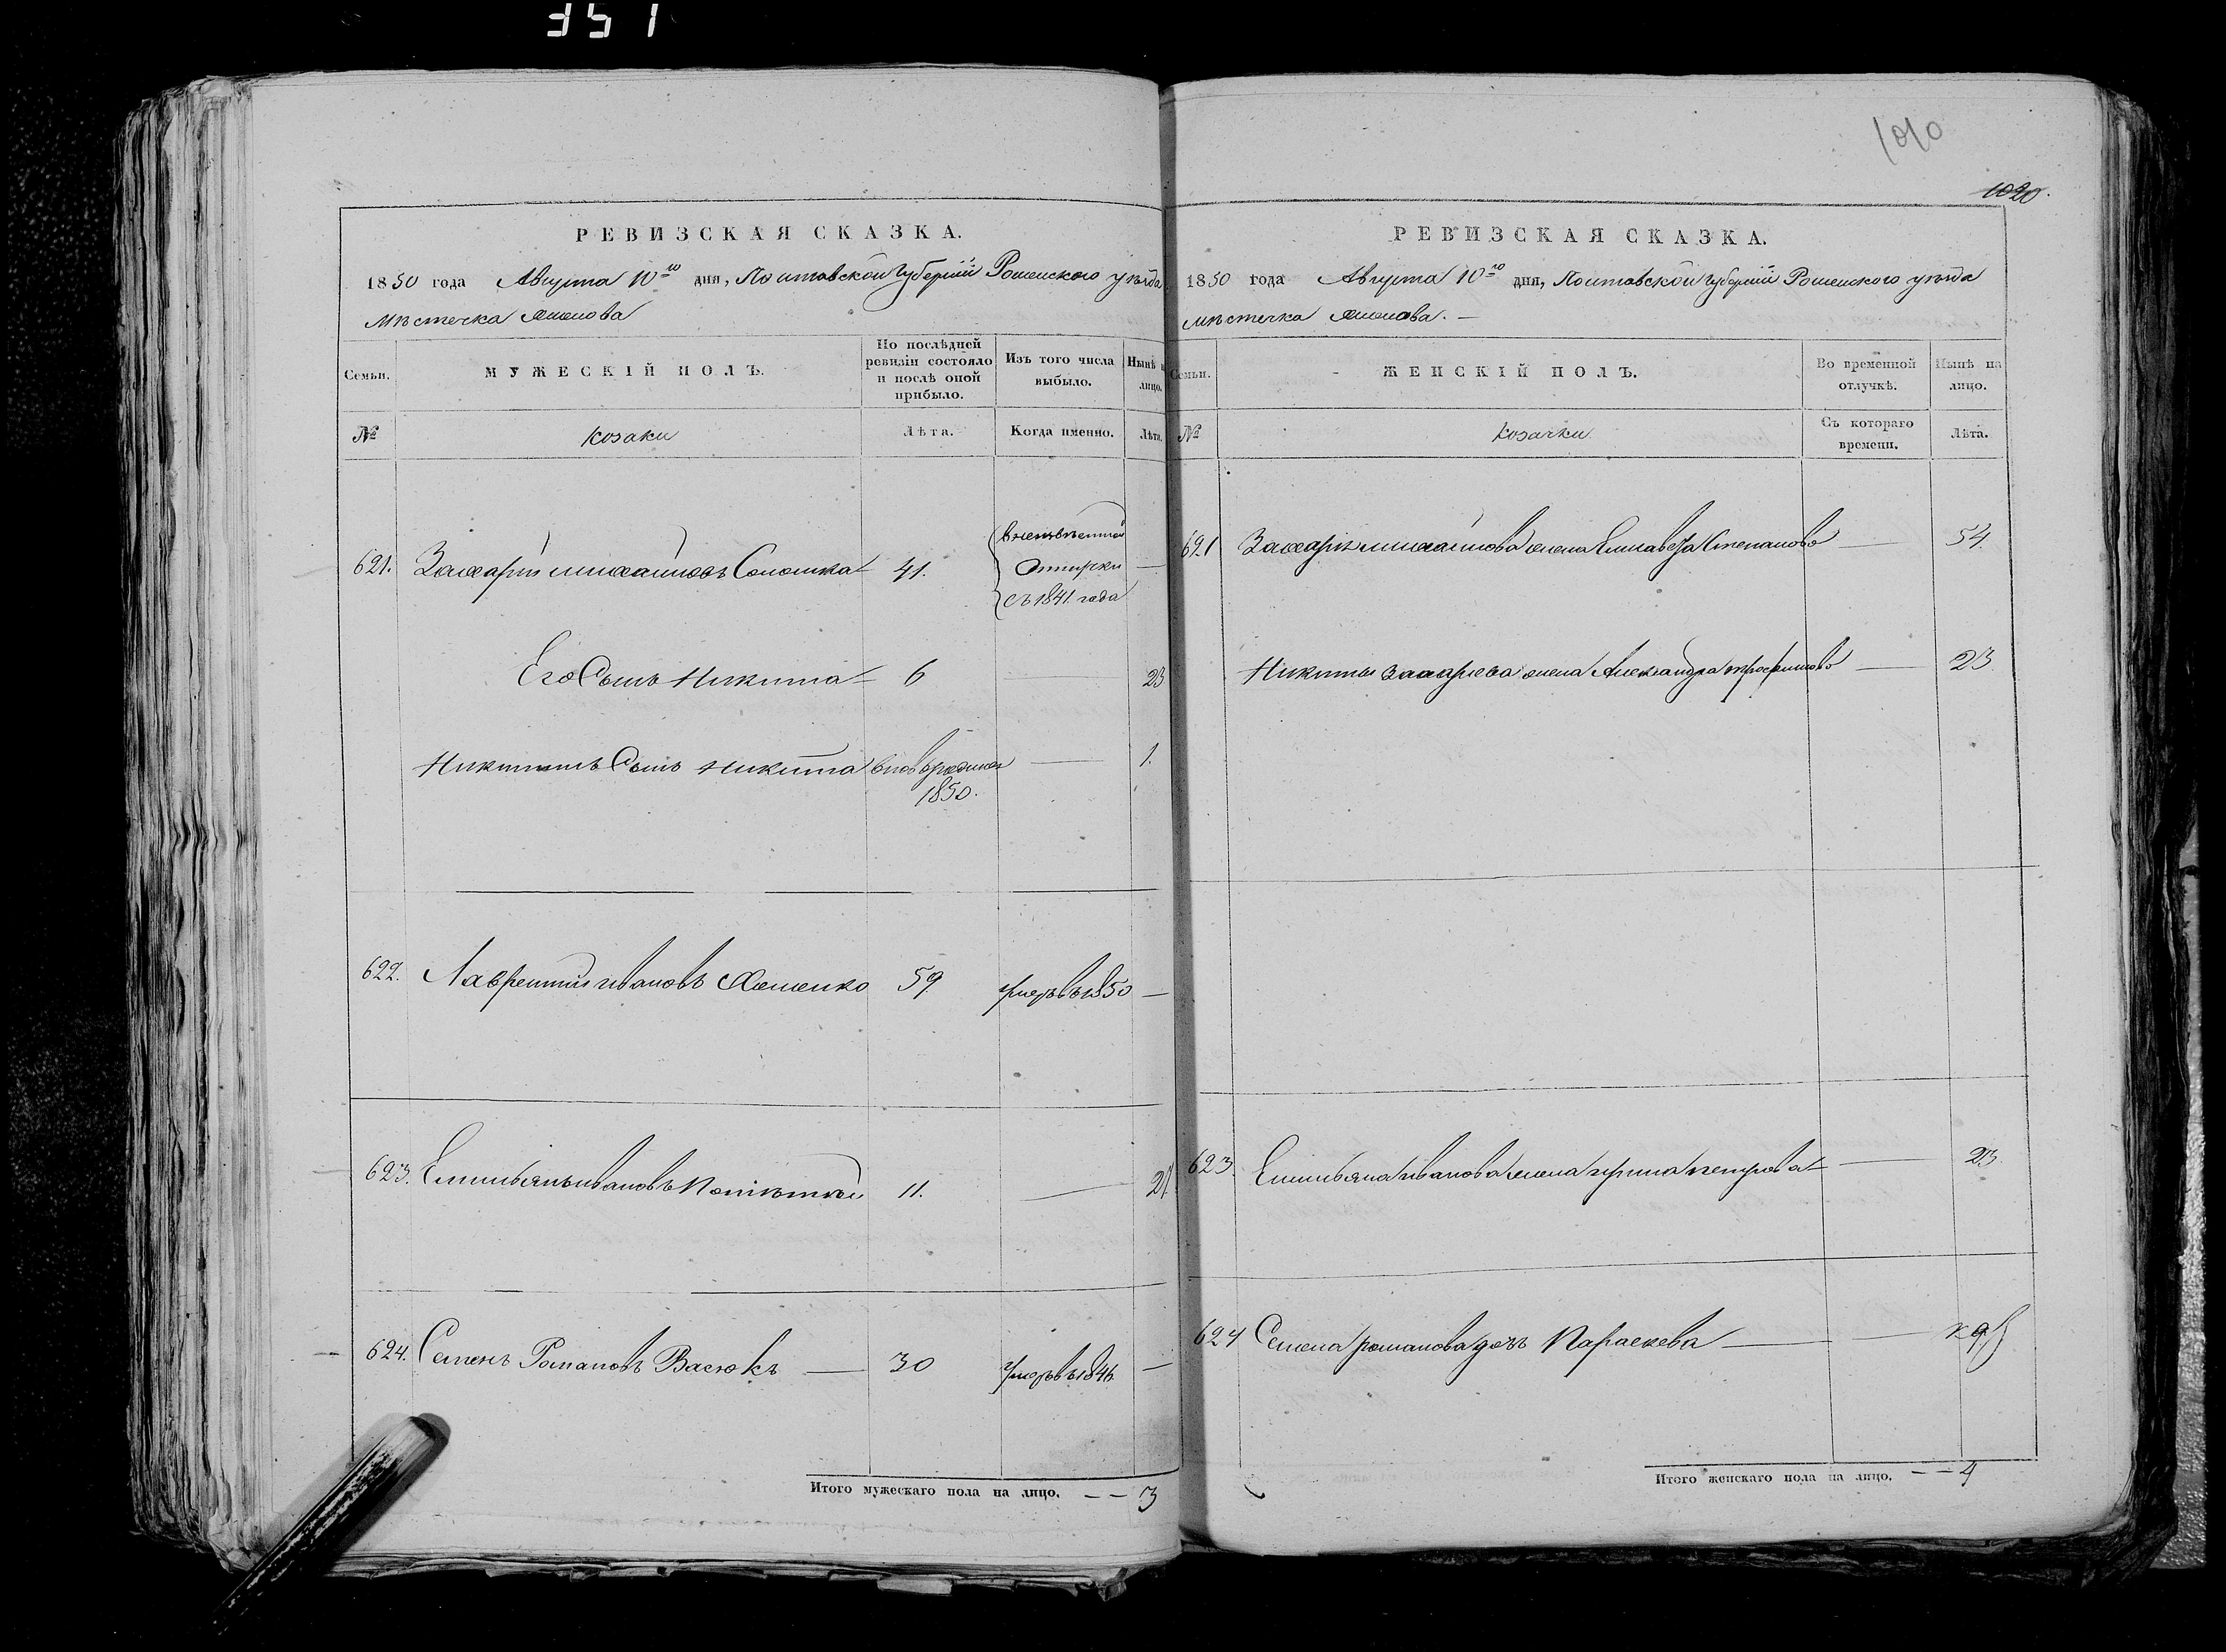 351
1010
1020.
РЕВИЗСКАЯ СКАЗКА.
1850 года Августа 10го дня, Полтавской Губерніи Роменского уѣзда
Мѣстечка
Семьи.
МУЖЕСКІЙ ПОЛЪ.
По послѣдней ревизіи состояло и послѣ оной прибыло.
Изъ того числа выбыло.
Нынѣ на лицо.
№
Козаки
Лѣта.
Когда именно.
Лѣта.
621. Захарій Михайловъ 41.
въ неизвѣстной
Отлучки
съ 1841 года
—
Его Сынъ Никита 6 23
Никитинъ Сынъ Никита вновь рожден — 1.
1850.
622. Лаврентій Ивановъ 59 умеръ въ 1850 —
623. Емильянъ Ивановъ 11. — 21
624. Семенъ Романовъ Васюкъ — 30 умеръ въ 1846 —
Итого мужескаго пола на лицо. — — 3
РЕВИЗСКАЯ СКАЗКА.
1850 года Августа 10го дня, Полтавской Губерніи Роменского уѣзда
мѣстечка
Семьи.
ЖЕНСКІЙ ПОЛЪ.
Во временной отлучкѣ.
Нынѣ на лицо.
№
Козачки
Съ котораго времени.
Лѣта.
621 Захарія Михайлова жена Елисавета Степанова — 54.
Никиты Захарьева жена Александра Трофимова — 23
623. Емильяна Иванова жена Ирина Петрова — 23.
624 Семена Романова дочь Параскева —
Итого женскаго пола на лицо. — — 4